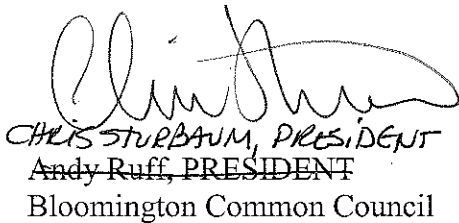 CHRIS STURBAUM, PRESIDENT
Andy Ruff, PRESIDENT
Bloomington Common Council